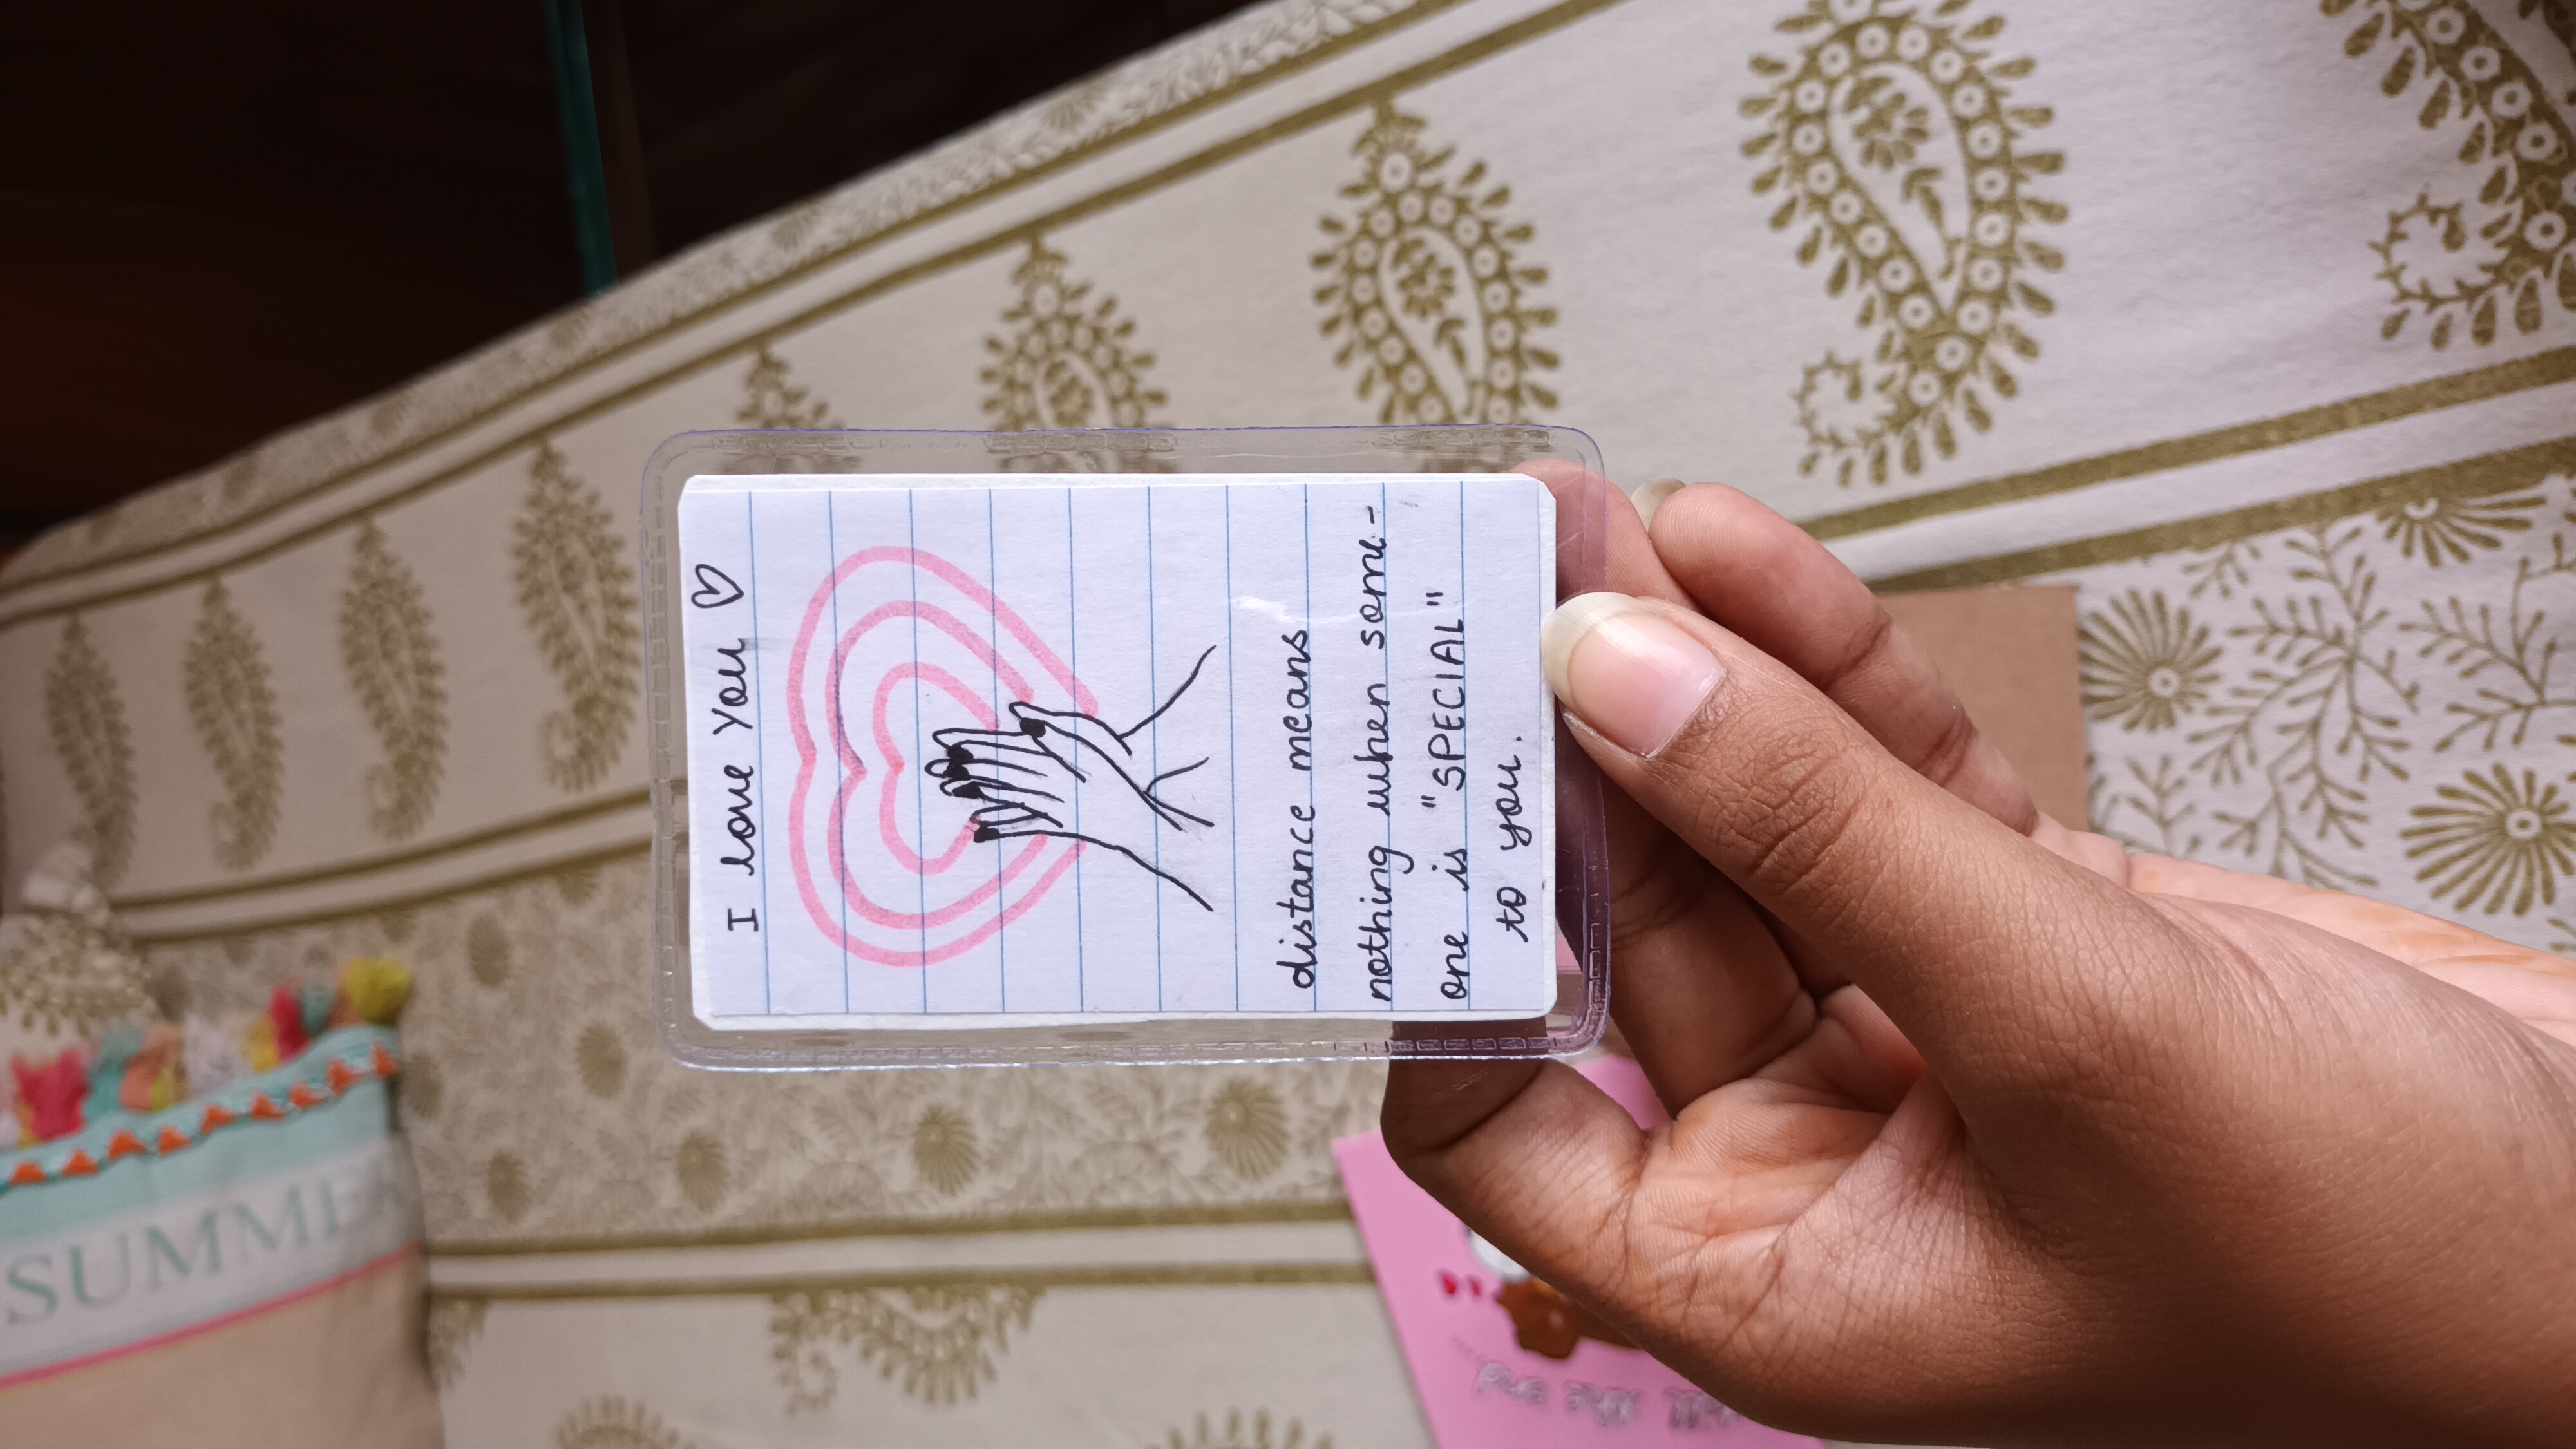 SUMME
I love You ♡
distance means
nothing when some-
one is "SPECIAL"
to you.